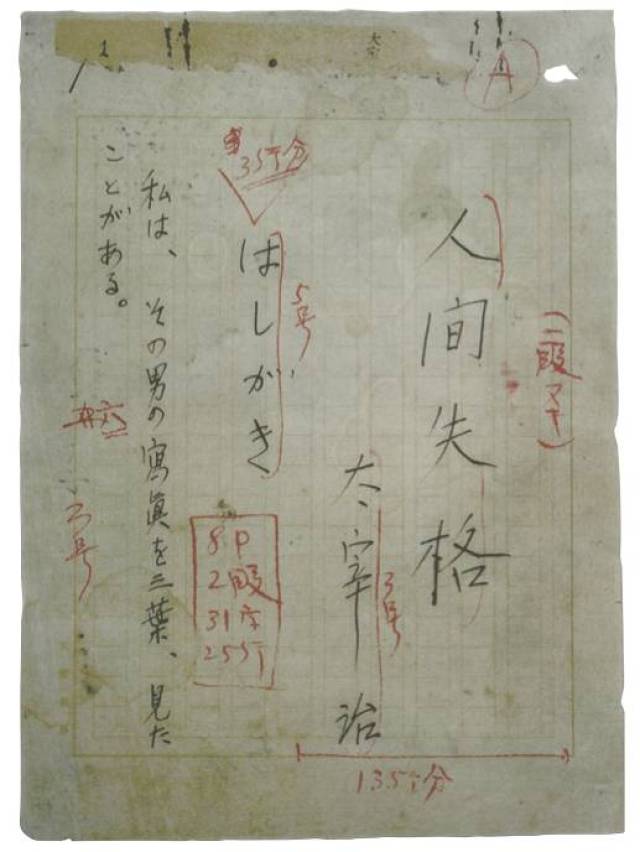 A
(二段ヌキ)
人間失格
太宰 治
3号
13行分
35行分
はしがき
5号
8P
2段
31字
25行
私は、その男の寫眞を三葉、見た
ことがある。
3号